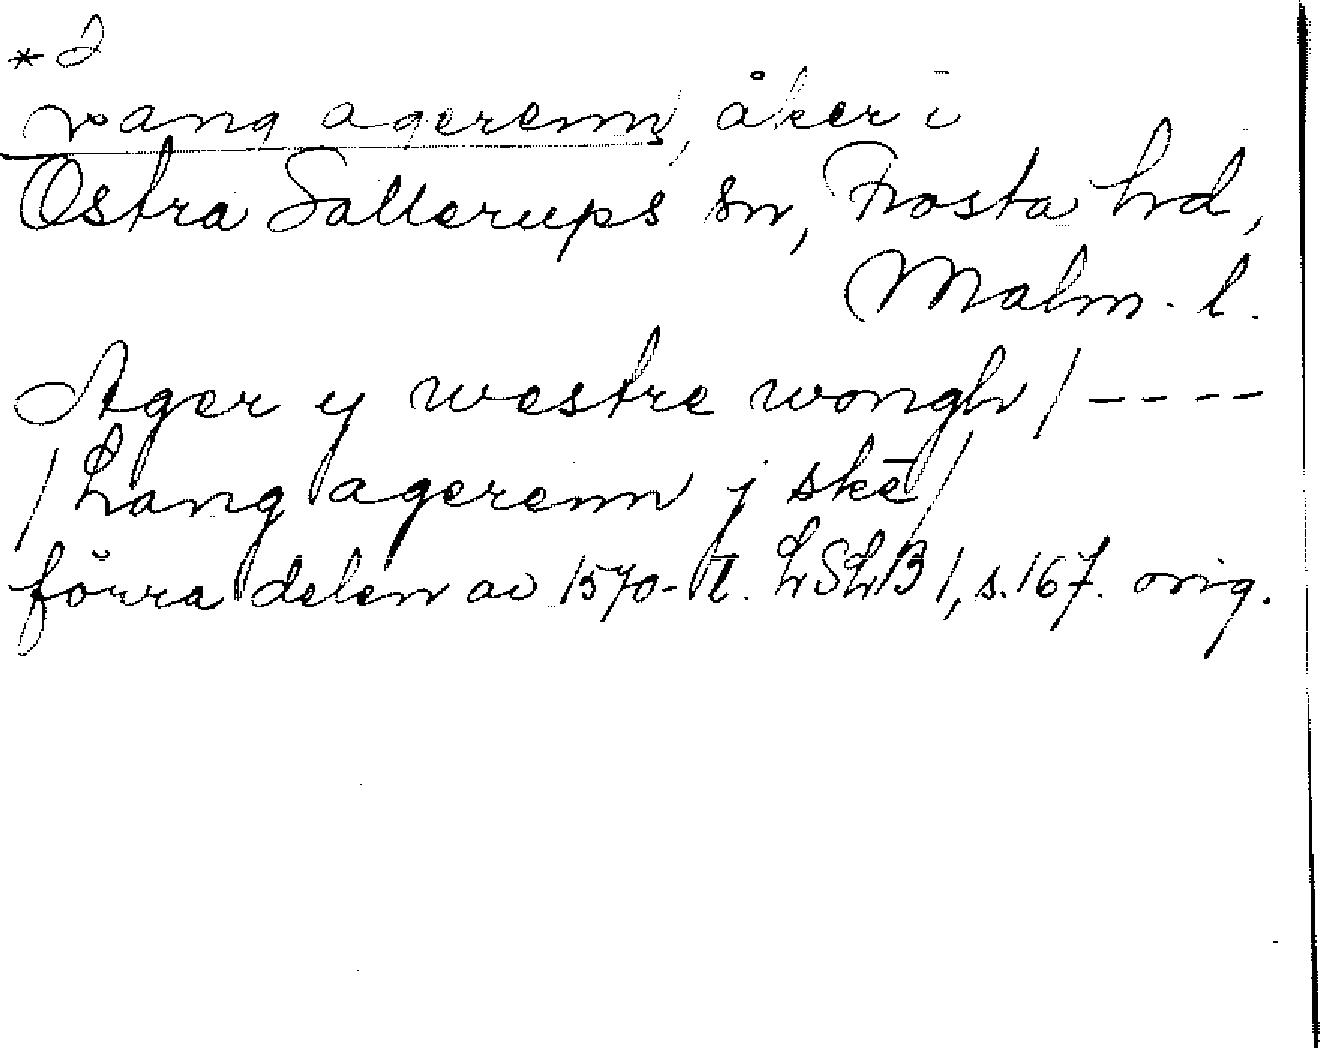 *
vang agerenn, åker i
Östra Sallerups sn, Frosta hd,
Malm. l.
Ager y westre wongh / ----
/ Lang agerenn j skē /
förra delen av 1570-t. LSLB 1, s. 167. orig.